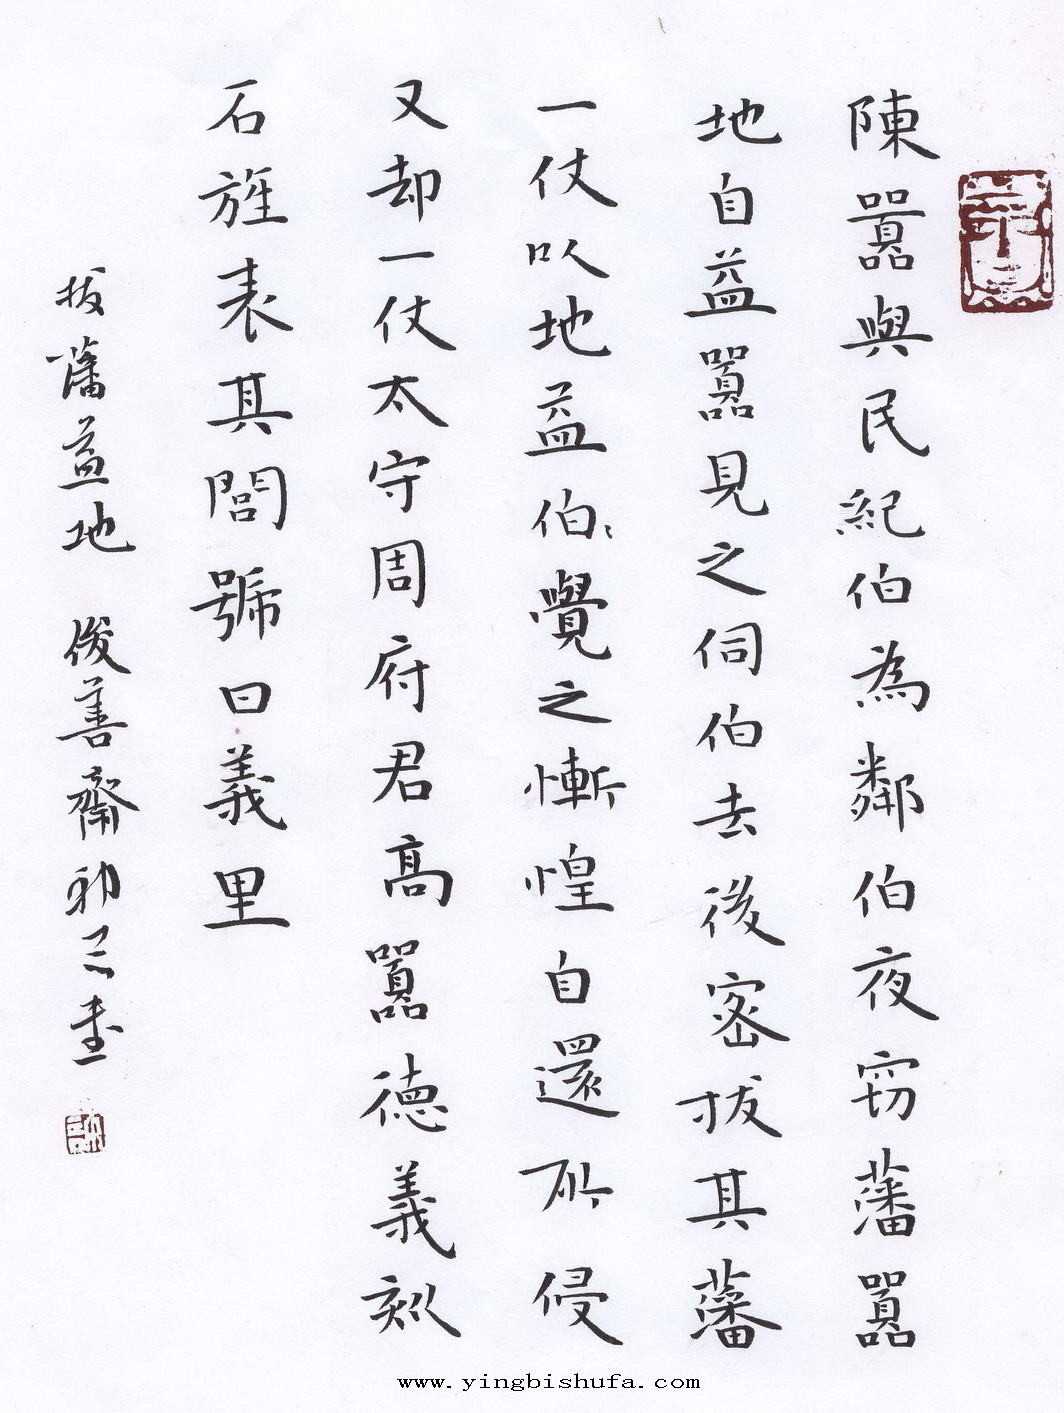 陳囂與民紀伯為鄰伯夜窃藩囂
地自益囂見之伺伯去後密拔其藩
一仗以地益伯伯覺之慚惶自還所侵
又却一仗太守周府君高囂德義刻
石旌表其閭號曰義里
拔藩益地 俊善齋
www.yingbishufa.com